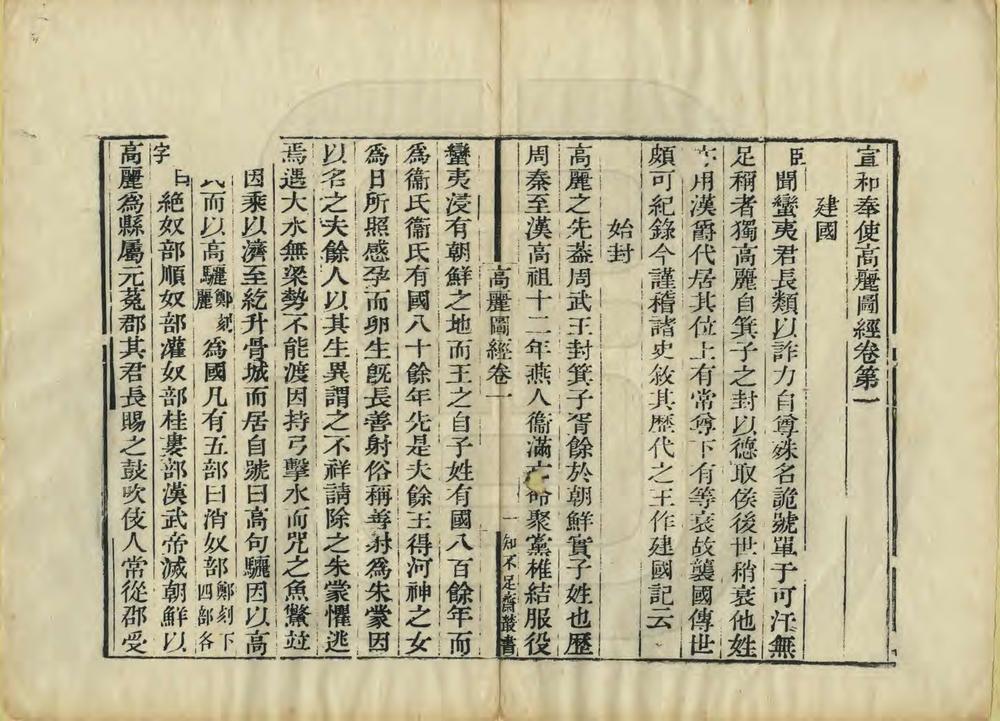 宣和奉使高麗圖經卷第一
建國
臣聞蠻夷君長類以詐力自尊殊名詭號單于可汗無
足稱者獨高麗自箕子之封以德取侯後世稍衰他姓
亦用漢爵代居其位上有常尊下有等衰故襲國傳世
頗可紀錄今謹稽諸史敘其歷代之王作建國記云
始封
高麗之先蓋周武王封箕子胥餘於朝鮮實子姓也歷
周秦至漢高祖十二年燕人衞滿亡命聚黨椎結服役
高麗圖經卷一
一
知不足齋叢書
蠻夷浸有朝鮮之地而王之自子姓有國八百餘年而
爲衞氏衞氏有國八十餘年先是夫餘王得河神之女
爲日所照感孕而卵生旣長善射俗稱善射爲朱蒙因
以名之夫餘人以其生異謂之不祥請除之朱蒙懼逃
焉遇大水無梁勢不能渡因持弓擊水而咒之魚鱉並
因乘以濟至紇升骨城而居自號曰高句驪因以高
氏而以高驪鄭刻麗爲國凡有五部曰消奴部鄭刻下四部各
字曰絶奴部順奴部灌奴部桂婁部漢武帝滅朝鮮以
高麗爲縣屬元菟郡其君長賜之鼓吹伎人常從郡受